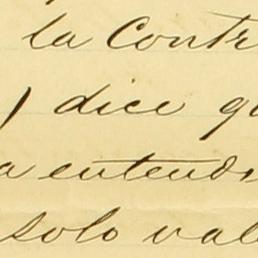 la Contr
) dice qu
a entend
solo val